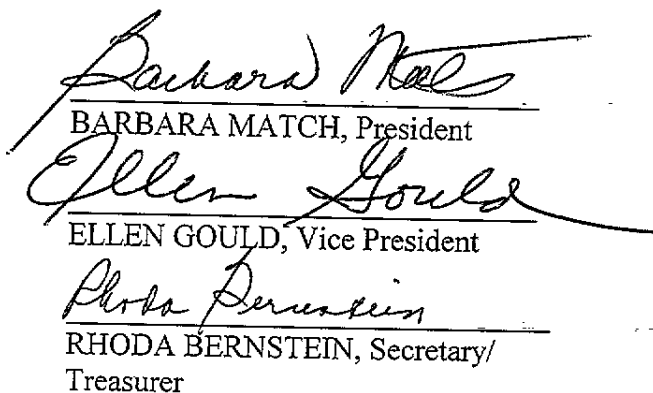 Barbara
BARBARA MATCH, President
Ellen Gould
ELLEN GOULD, Vice President
Rhoda Bernstein
RHODA BERNSTEIN, Secretary/
Treasurer